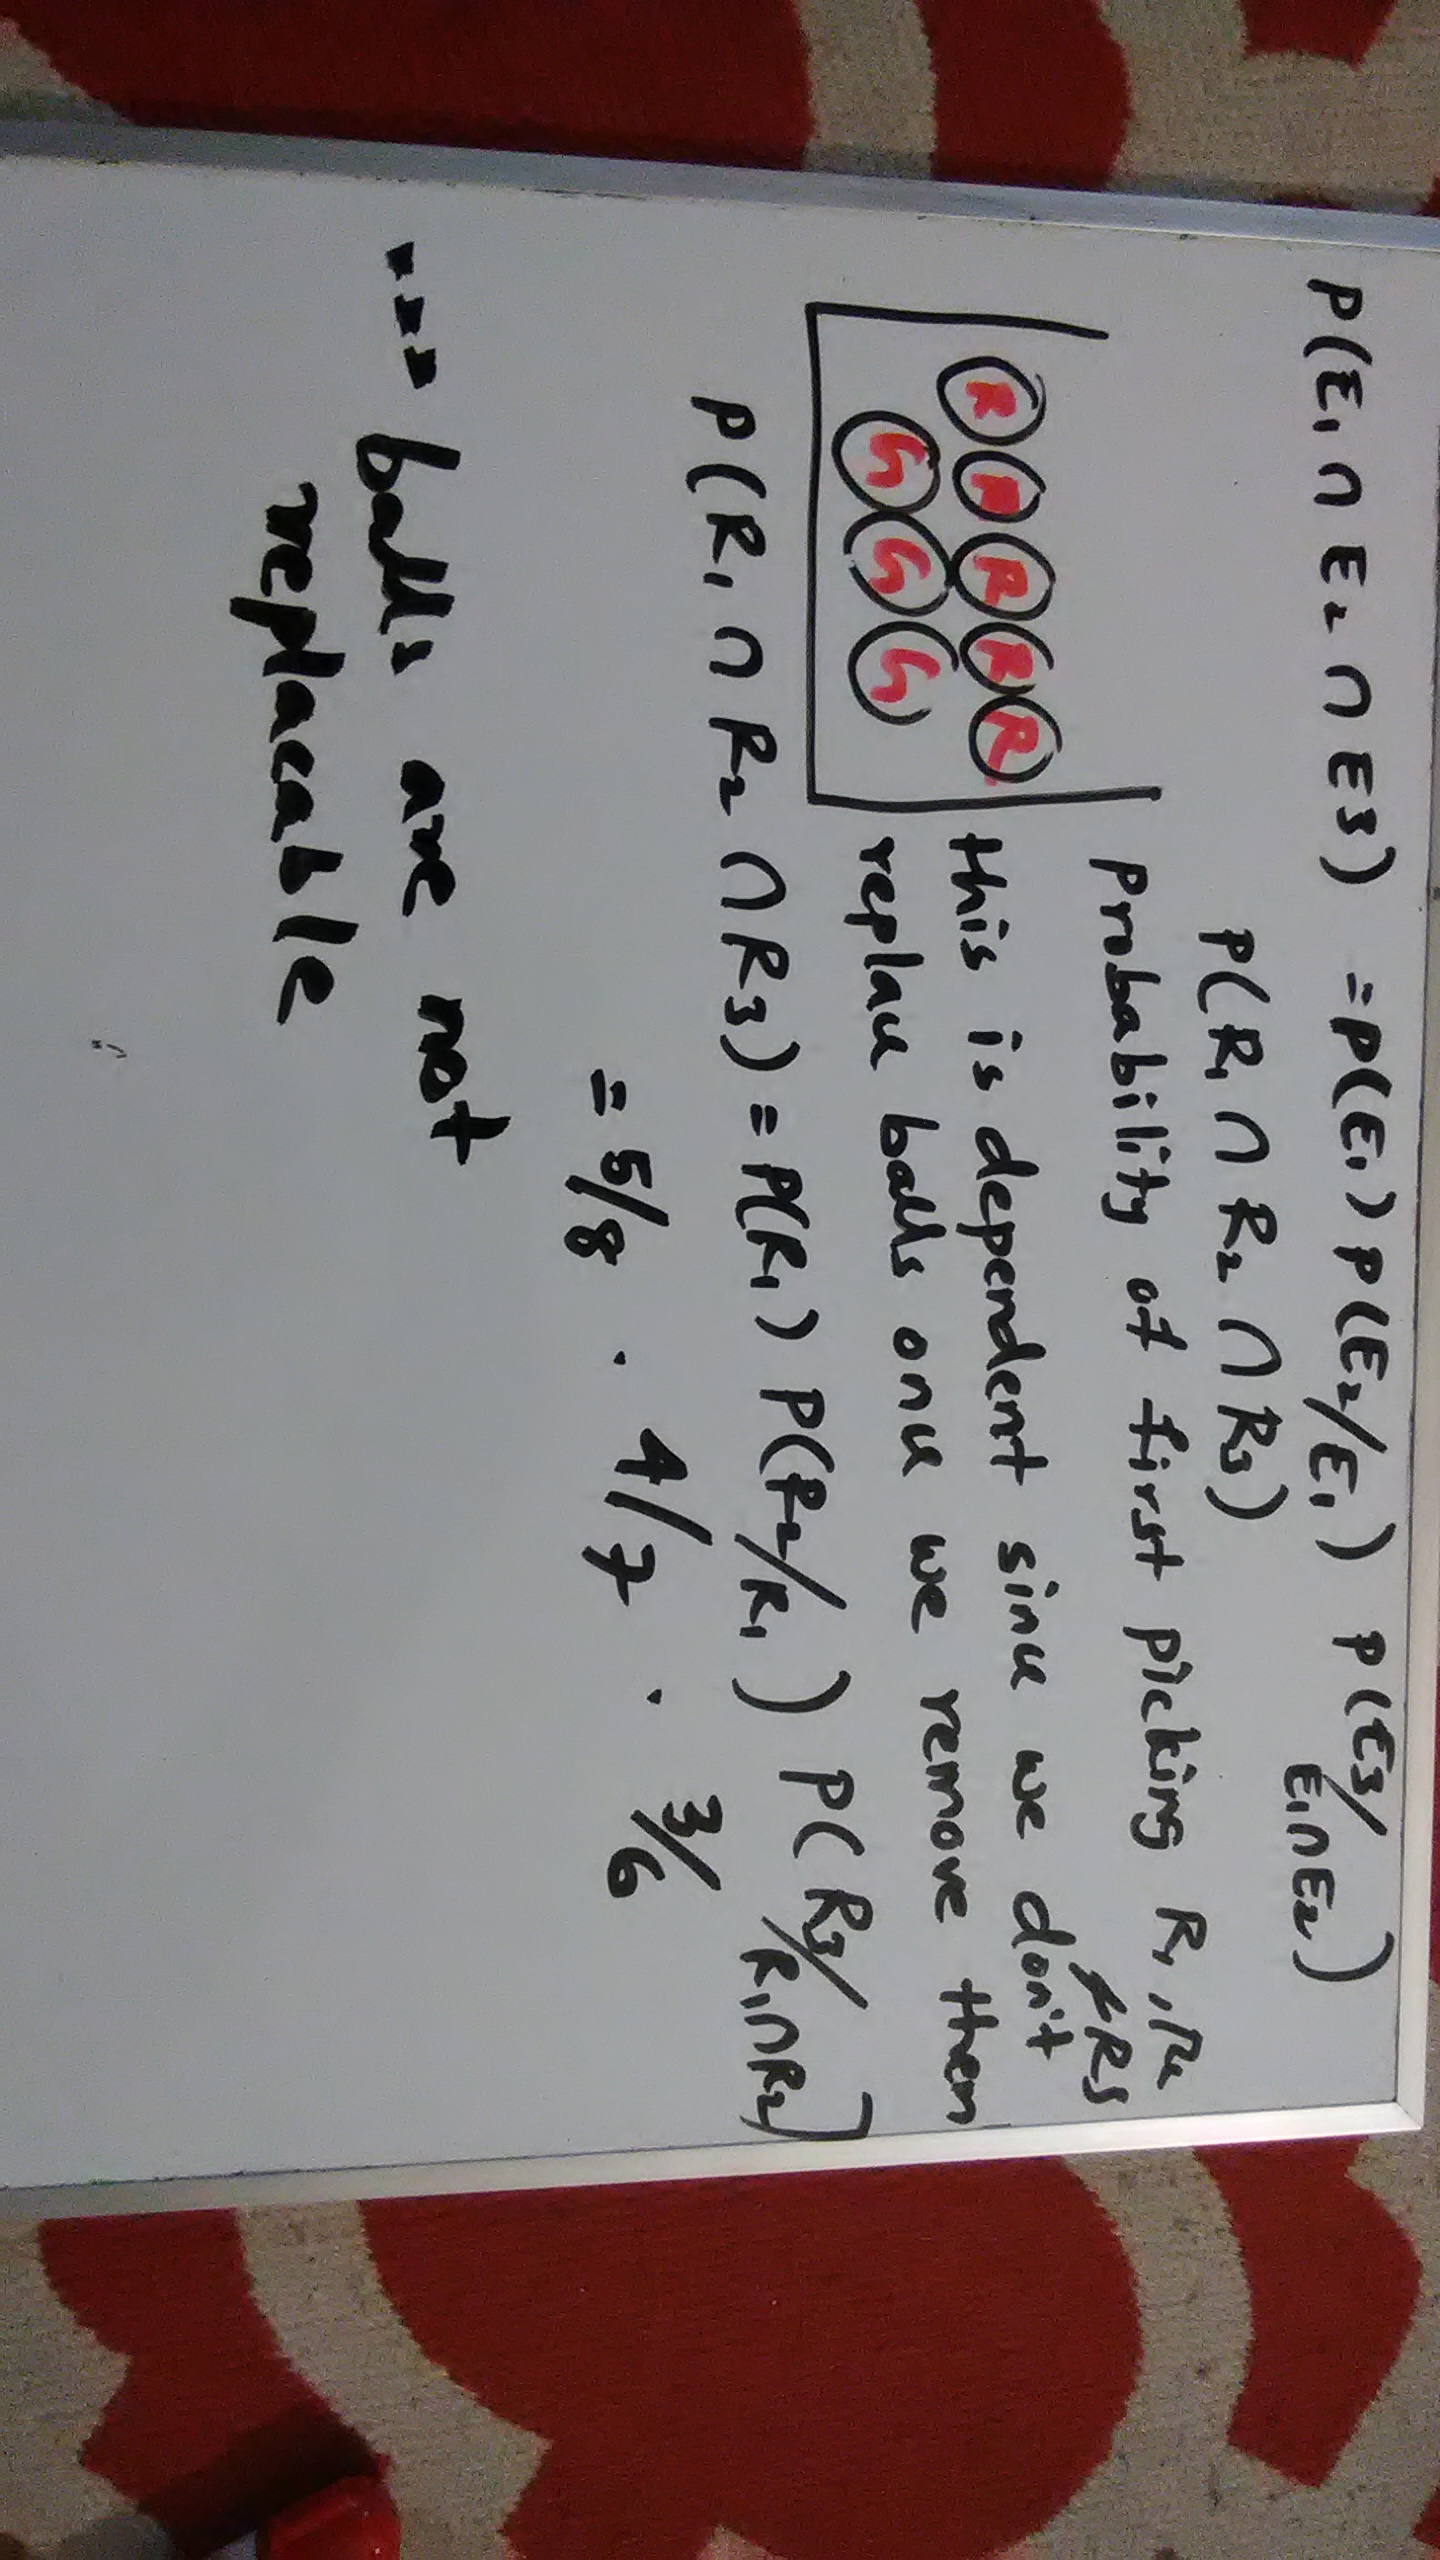 P(E1 ∩ E2 ∩ E3) = P(E1) P(E2/E1) P(E3/
E1∩E2)
P(R1 ∩ R2 ∩ R3)
Probability of first picking R1, R2
& R3
R R R R R
G G G
this is dependent since we don't
replace balls once we remove them
P(R1 ∩ R2 ∩ R3) = P(R1) P(R2/R1) P(R3/
R1∩R2)
= 5/8 . 4/7 . 3/6
balls are not
replacable